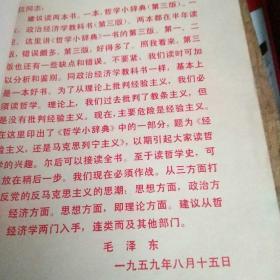 位同志:
建议读两本书。一本,哲学小辞典(第三版)。
政治经济学教科书(第三版)。两本都在半年读
。这里讲《哲学小辞典》一书的第三版。第一、二
,错误颇多。第三版,好得多了。照我看来,第三
版也还有一些缺点和错误。不要紧,我们读时可加
以分析和鉴别。同政治经济学教科书一样,基本上
是一本好书。为了从理论上批判经验主义,我们必
须读哲学。理论上,我们过去批判了教条主义,但
是没有批判经验主义。现在,主要危险是经验主义。
在这里印出了《哲学小辞典》中的一部分,题为《经
验主义,还是马克思列宁主义》,以期引起大家读哲
学的兴趣。尔后可以接读全书。至于读哲学史,可
放在稍后一步。我们现在必须作战。从三方面打
反党的反马克思主义的思潮:思想方面,政治方
经济方面。思想方面,即理论方面。建议从哲
经济学两门入手,连类而及其他部门。
毛泽东
一九五九年八月十五日